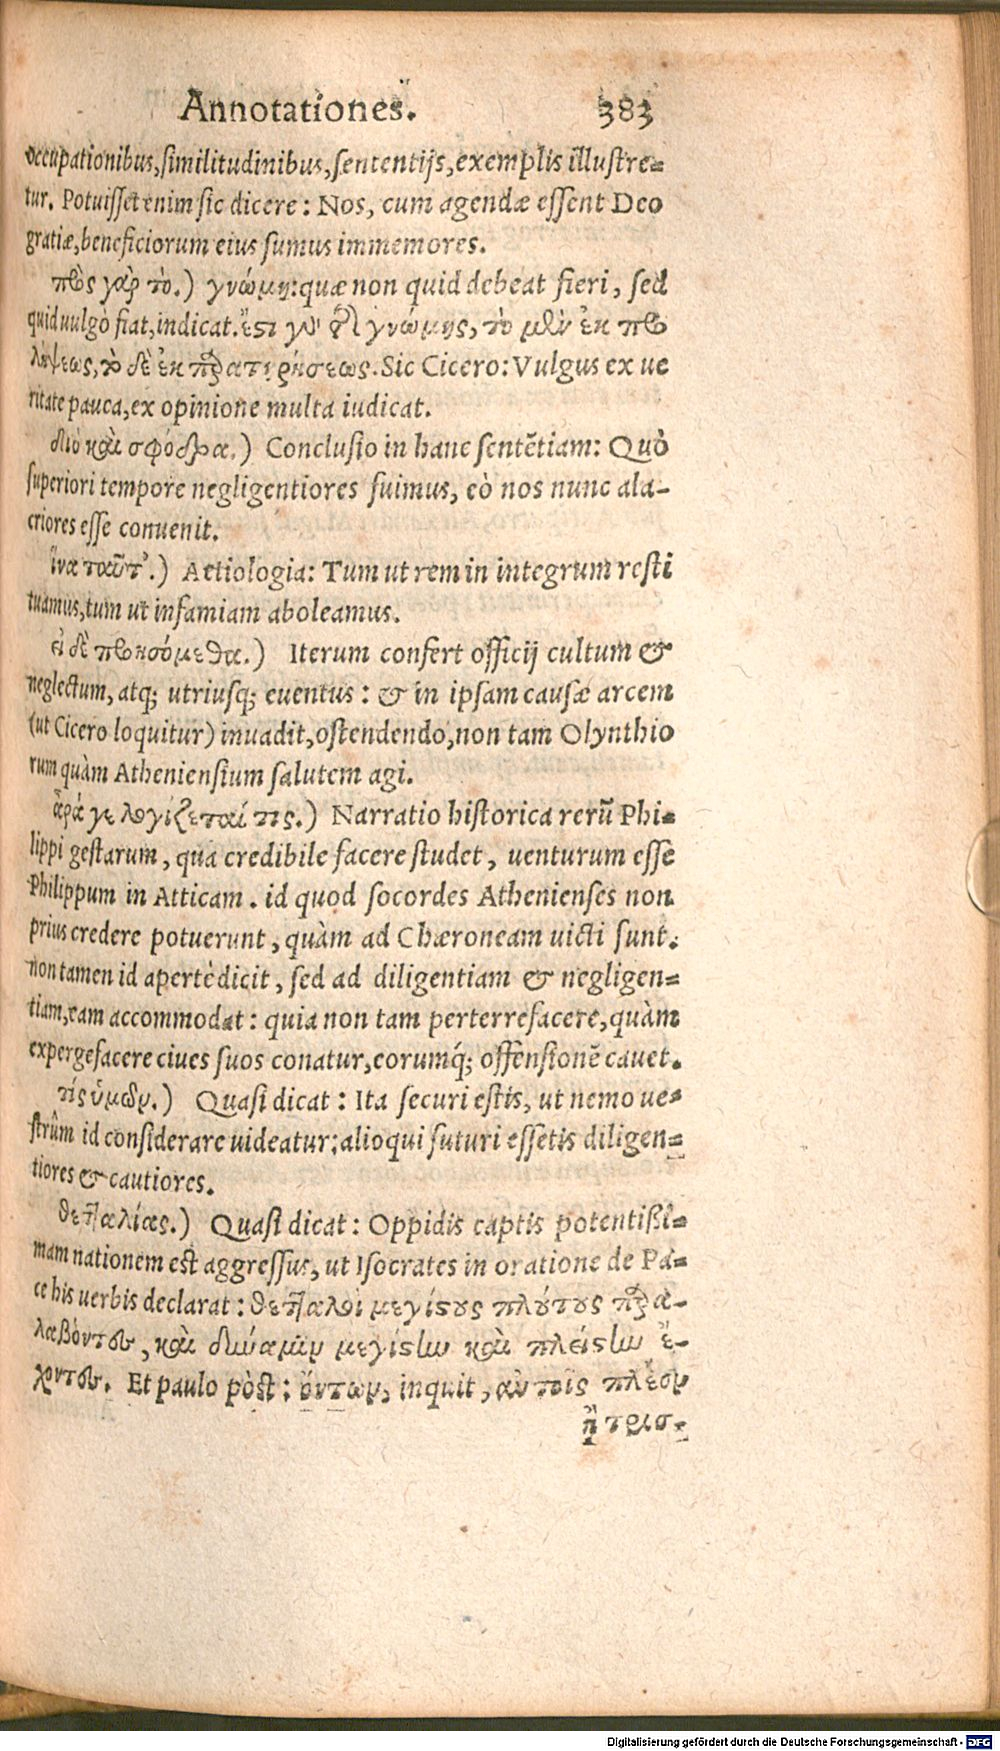 Annotationes. 383
occupationibus, similitudinibus, sententijs, exemplis illustre-
tur. Potuisset enim sic dicere: Nos, cum agendæ essent Deo
gratiæ, beneficiorum eius sumus immemores.
πρὸς γὰρ τὸ.) γνώμη: quæ non quid debeat fieri, sed
quid uulgò fiat, indicat. ἔστι γὰρ τῆς γνώμης, τὸ μὲν ἐκ προ
λήψεως, τὸ δὲ ἐκ παρατηρήσεως. Sic Cicero: Vulgus ex ue
ritate pauca, ex opinione multa iudicat.
διὸ καὶ σφόδρα.) Conclusio in hanc sentẽtiam: Quò
superiori tempore negligentiores fuimus, eò nos nunc ala-
criores esse conuenit.
ἵνα ταῦτ'.) Aetiologia: Tum ut rem in integrum resti
tuamus, tum ut infamiam aboleamus.
εἰ δὲ προησόμεθα.) Iterum confert officij cultum &
neglectum, atq; utriusq; euentus: & in ipsam causæ arcem
(ut Cicero loquitur) inuadit, ostendendo, non tam Olynthio
rum quàm Atheniensium salutem agi.
ἆρά γε λογίζεταί τις.) Narratio historica rerũ Phi-
lippi gestarum, qua credibile facere studet, uenturum esse
Philippum in Atticam. id quod socordes Athenienses non
prius credere potuerunt, quàm ad Chæroneam uicti sunt.
non tamen id apertè dicit, sed ad diligentiam & negligen-
tiam, eam accommodat: quia non tam perterrefacere, quàm
expergefacere ciues suos conatur, eorumq́; offensionẽ cauet.
τίς ὑμῶν.) Quasi dicat: Ita securi estis, ut nemo ue-
strûm id considerare uideatur: alioqui futuri essetis diligen-
tiores & cautiores.
θετταλίας.) Quasi dicat: Oppidis captis potentißi-
mam nationem est aggressus, ut Isocrates in oratione de Pa-
ce his uerbis declarat: θετταλοὶ μεγίστους πλούτους παρα-
λαβόντες, καὶ δύναμιν μεγίστην καὶ πλείστην ἔ-
χοντες. Et paulo pòst: ὄντων, inquit, αὐτοῖς πλέον
ἢ τρισ-
Digitalisierung gefördert durch die Deutsche Forschungsgemeinschaft - DFG